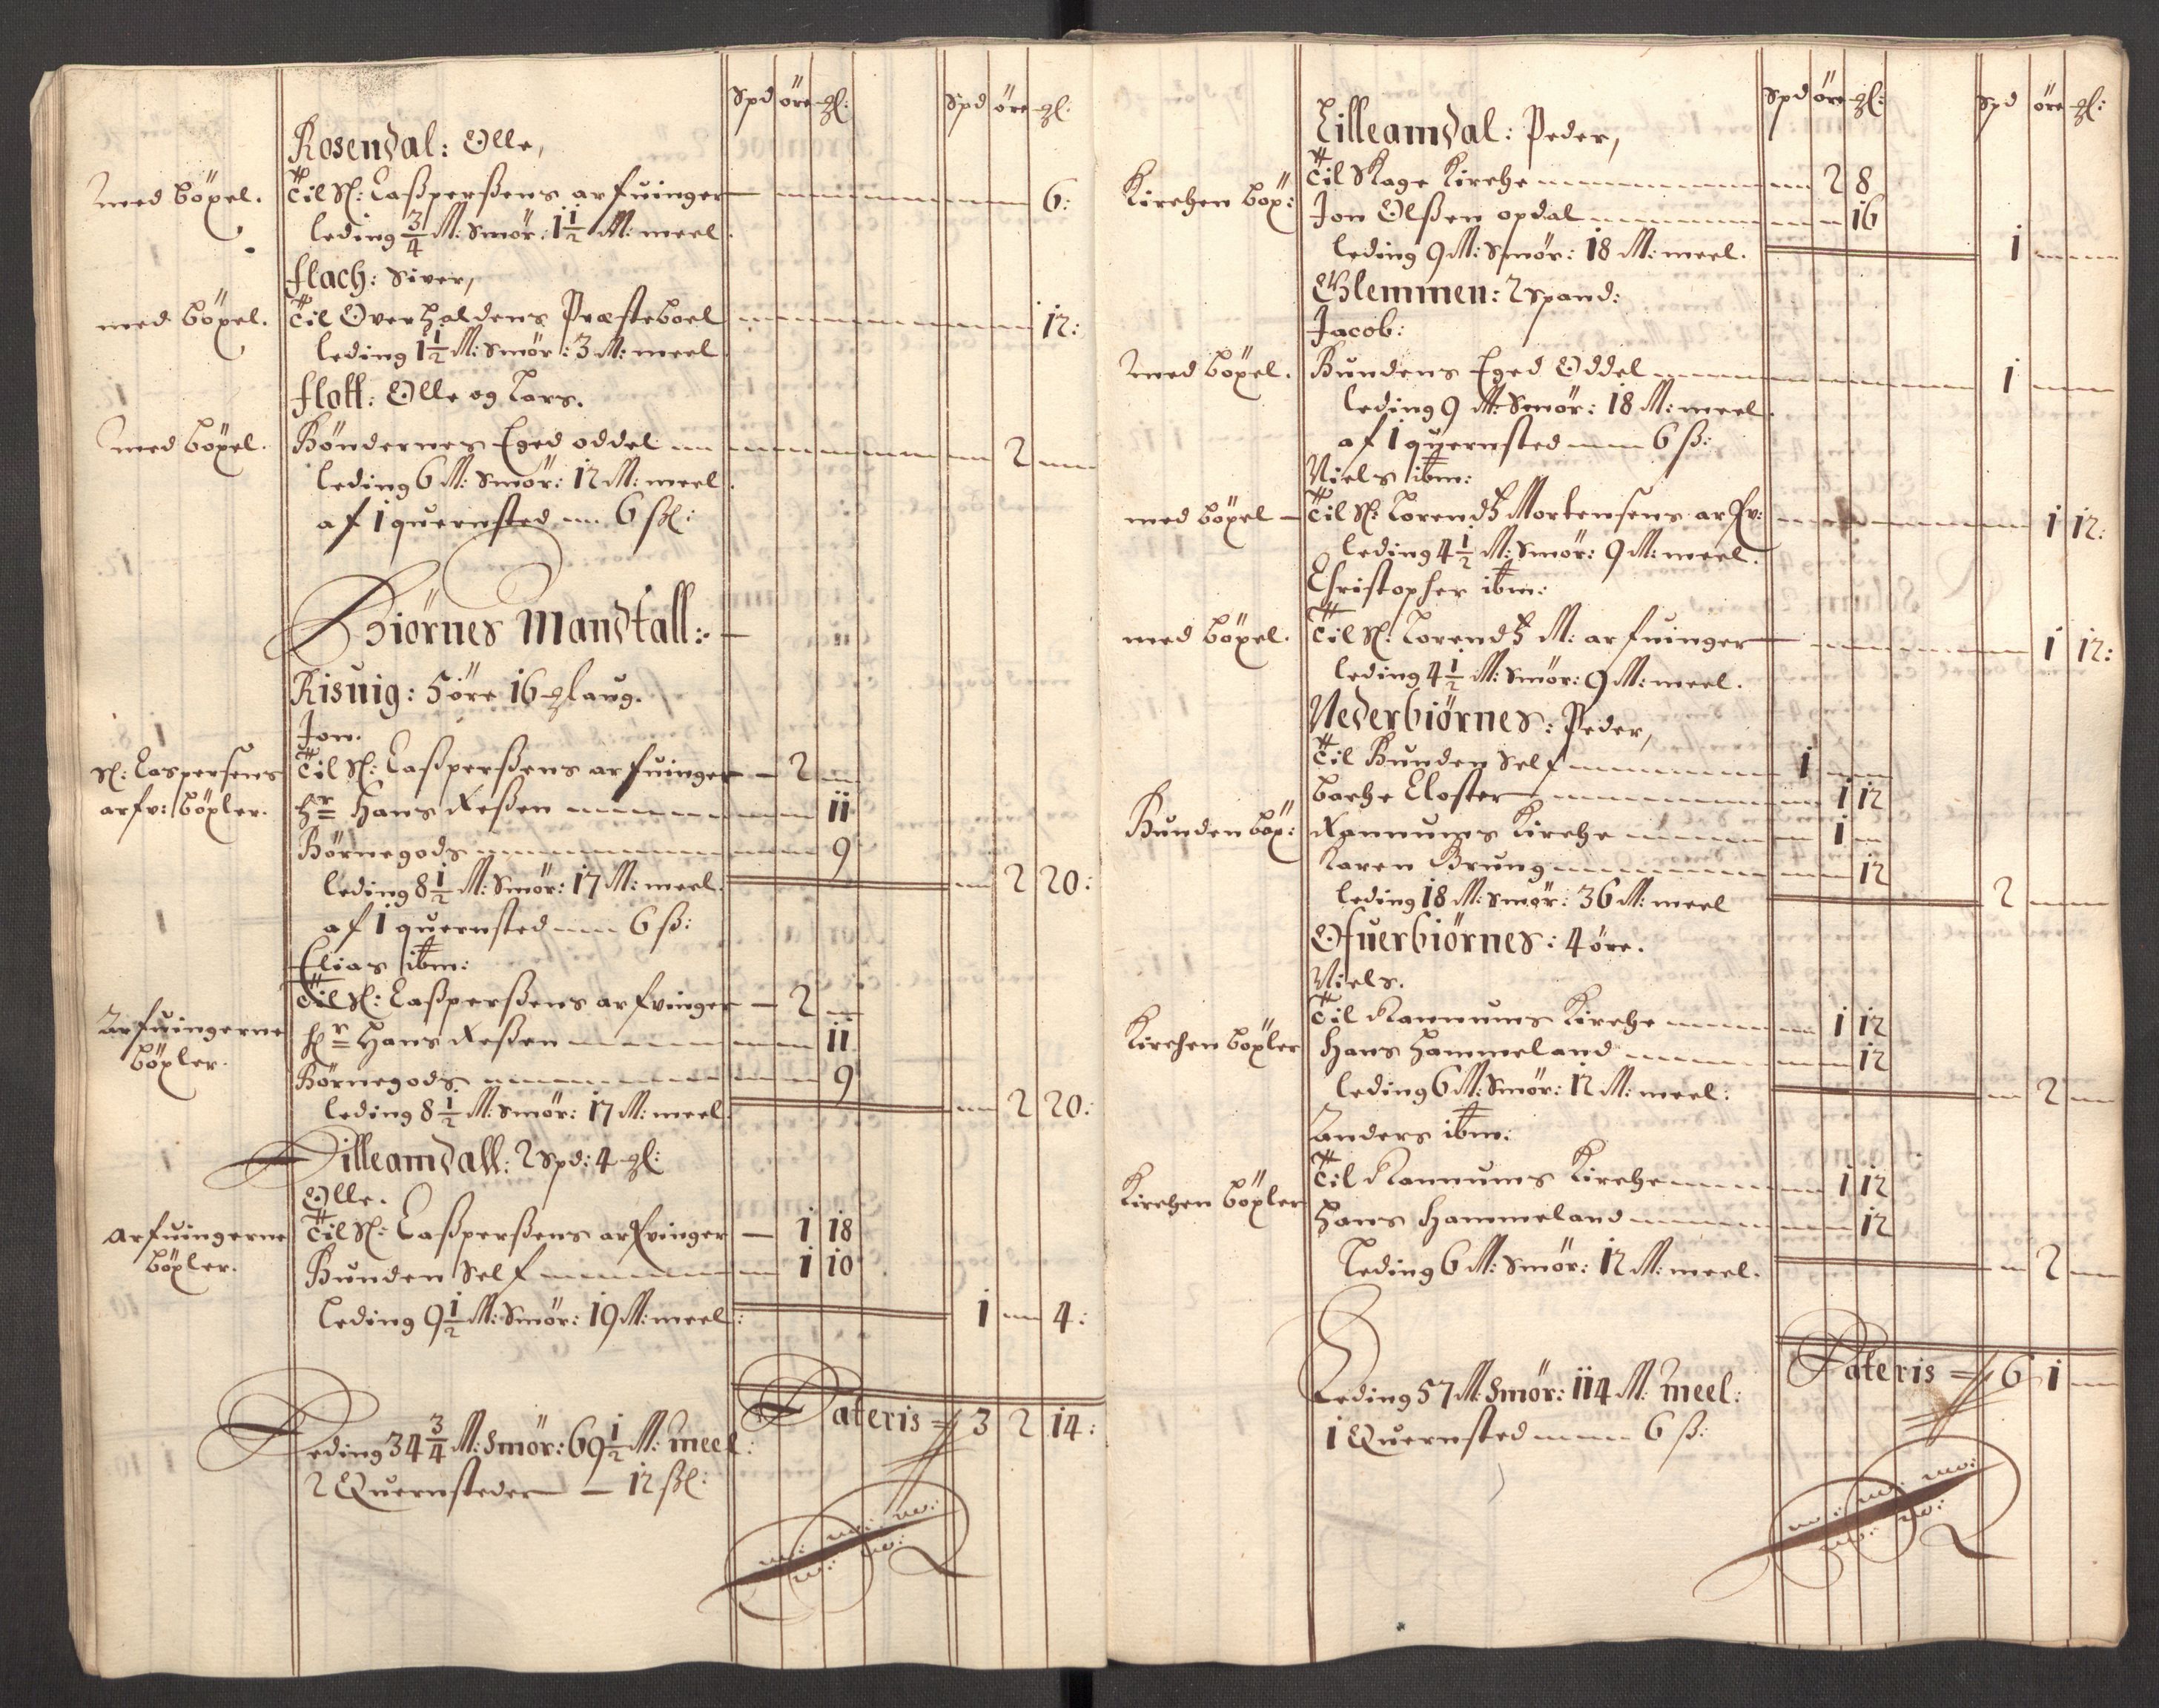 Spd öre gl: Spd öre gl:
Rosendal: Olle,
med böxel. Til Sl: Casperßens arfuinger 6:
leding 3/4 M: Smör: 1 1/2 M: meel.
flach: Siver,
med böxel. Til Overhaldens Præsteboel 12:
leding 1 1/2 M: Smör: 3 M: meel
flott: Olle og Lars.
med böxel. Böndernes Eged oddel 2
leding 6 M: Smör: 12 M: meel.
af 1 quernsted 6 ßl:
Biörnes Mandtall:
Risuig: 5 öre 16 glaug.
Jon.
Sl: Caspersens arfv: böxler. Til Sl: Casperßens arfuinger 2
hr Hans Neßen 11
Börnegods 9
leding 8 1/2 M: Smör: 17 M: meel. 2 20:
af 1 quernsted 6 ß:
Elias ibm:
Arfuingerne böxler. Til Sl: Casperßens arfvinger 2
hr Hans Neßen 11
Börnegods 9
leding 8 1/2 M: Smör: 17 M: meel. 2 20:
Lilleamdall: 2 Spd: 4 gl:
Olle.
Arfuingerne böxler. Til Sl: Casperßens arfvinger 1 18
Bunden Self 1 10
leding 9 1/2 M: Smör: 19 M: meel: 1 4:
Lateris 3 2 14:
Leding 34 3/4 M: Smör: 69 1/2 M: Meel:
2 Quernsteder 12 ßl:
Spd öre gl: Spd öre gl:
Lilleamdal: Peder,
Kirchen böx: Til Skage Kirche 2 8
Jon Olßen opdal 16
leding 9 M: Smör: 18 M: meel. 1
Glemmen: 2 Spand:
Jacob:
med böxel. Bundens Eged Oddel 1
leding 9 M: Smör: 18 M: meel.
af 1 quernsted 6 ß:
Niels ibm:
med böxel Til Sl: Lorendtz Mortensens arfv: 1 12:
leding 4 1/2 M: Smör: 9 M: meel.
Christopher ibm:
med böxel. Til Sl: Lorendtz M: arfuinger 1 12:
leding 4 1/2 M: Smör: 9 M: meel.
Nederbiörnes: Peder,
Til Bunden Self 1
Bache Closter 1 12
Bunden böx: Rannums Kirche 1
Karen Brung 12
leding 18 M: Smör: 36 M: meel 2
Ofuerbiörnes: 4 öre.
Niels.
Til Rannums Kirche 1 12
Kirchen böxler Hans Hammeland 12
leding 6 M: Smör: 12 M: meel: 2
Anders ibm:
Kirchen böxler Til Rannums Kirche 1 12
Hans Hammeland 12
Leding 6 M: Smör: 12 M: meel. 2
Lateris 6 1
Leding 57 M: Smör: 114 M: Meel:
1 Quernsted 6 ß: